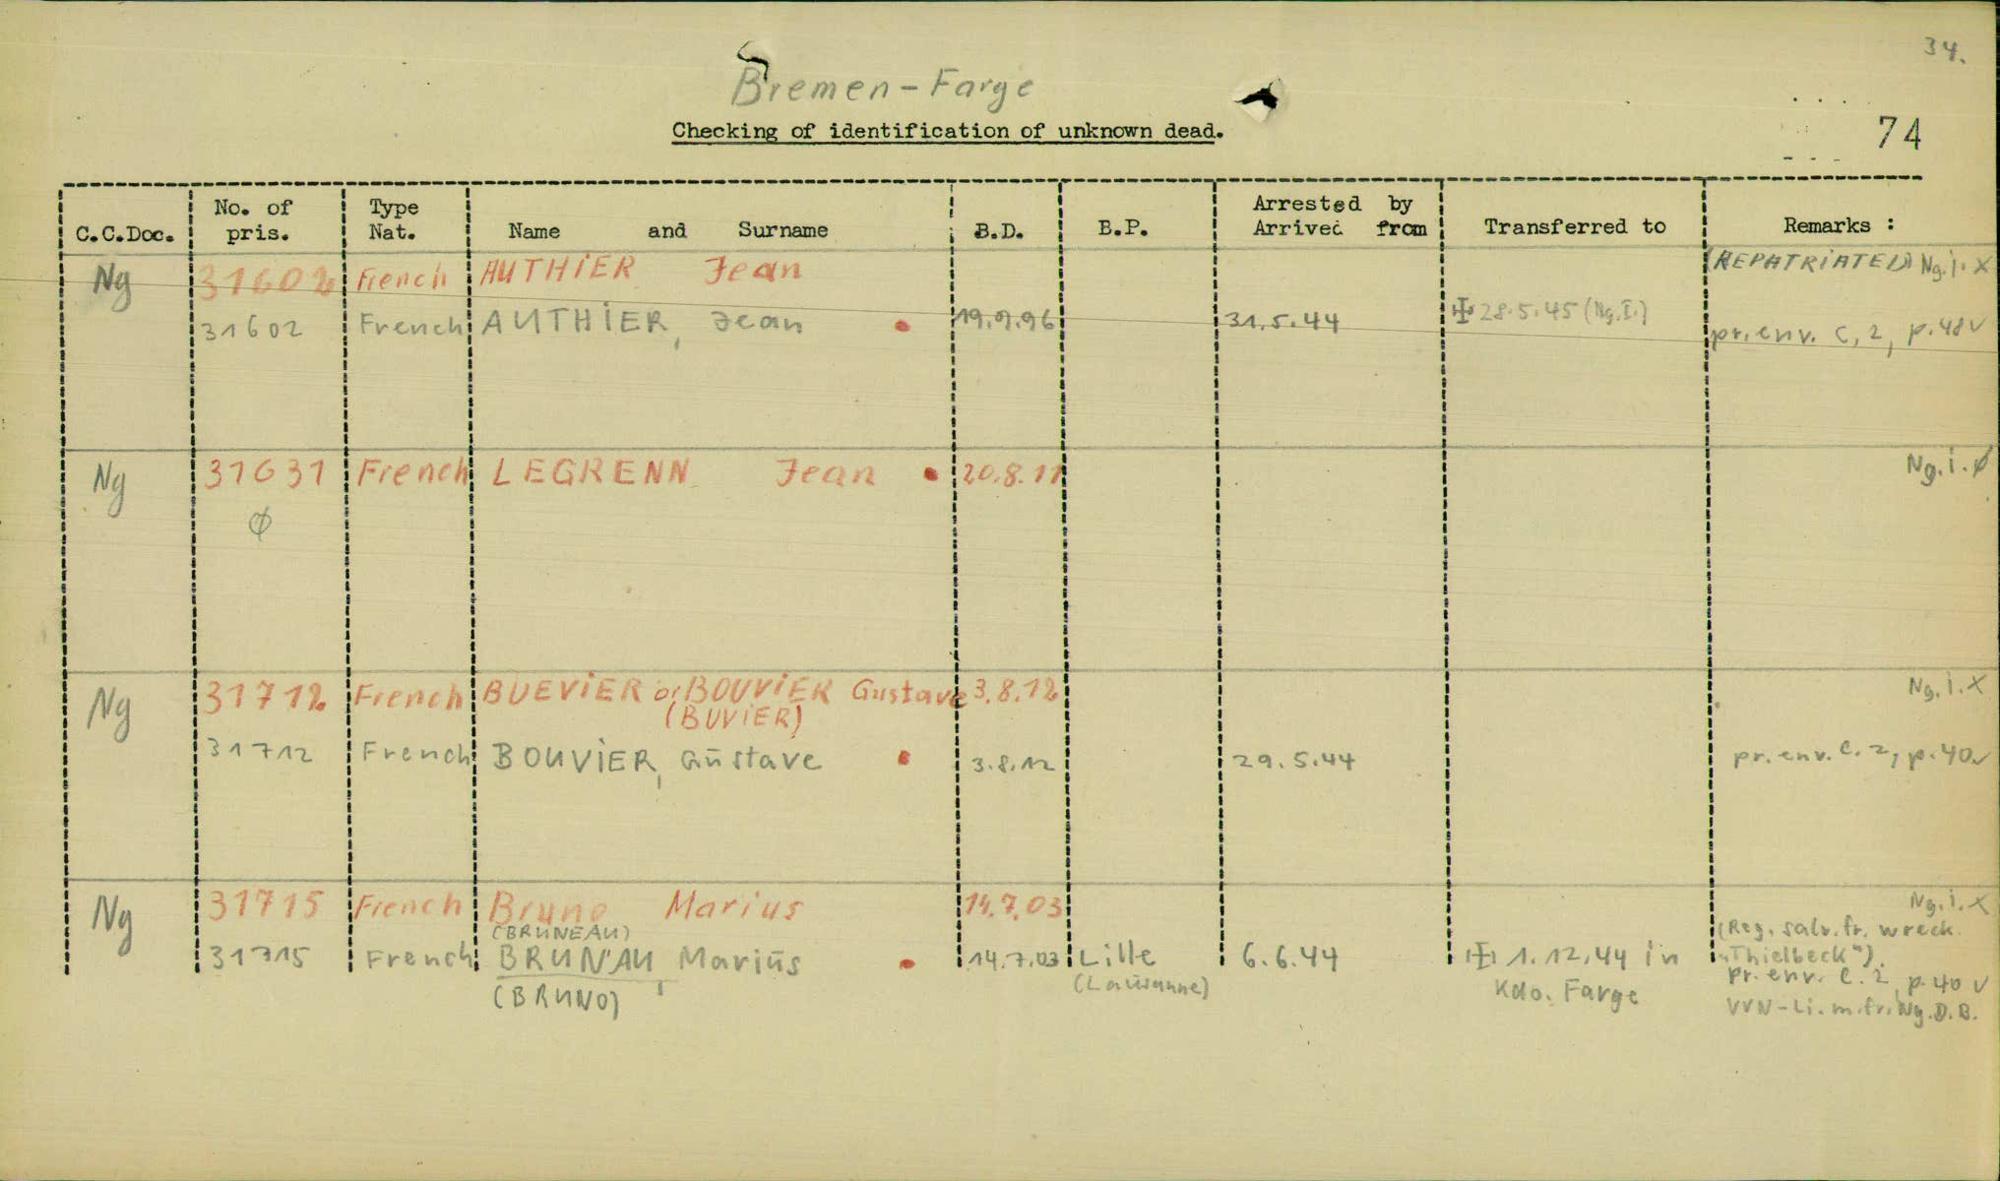 34.
Bremen-Farge
Checking of identification of unknown dead.
74
C.C.Doc. No. of pris. Type Nat. Name and Surname B.D. B.P. Arrested by Arrived from Transferred to Remarks :
Ng 31602 French AUTHiER Jean (REPATRiATED) Ng.i.X
31602 French AUTHiER, Jean 19.9.96 31.5.44 ✠ 28.5.45 (Ng.I.) pr.env. C, 2, p.48 v
Ng 31631 French LEGRENN Jean 20.8.11 Ng.i.ø
ø
Ng 31712 French BUEViER or BOUViER Gustave 3.8.12 Ng.i.X
(BUViER)
31712 French BOUViER, Gustave 3.8.12 29.5.44 pr.env. C. 2, p.40v
Ng 31715 French Bruno Marius 14.7.03 Ng.i.X
(BRUNEAU) (Reg. salv. fr. wreck
31715 French BRUN'AU, Marius 14.7.03 Lille 6.6.44 ✠ 1.12.44 in "Thielbeck").
(BRUNO) (Lausanne) Kdo. Farge pr.env. C. 2, p.40 v
VVN-Li.m.fr.Ng.D.B.